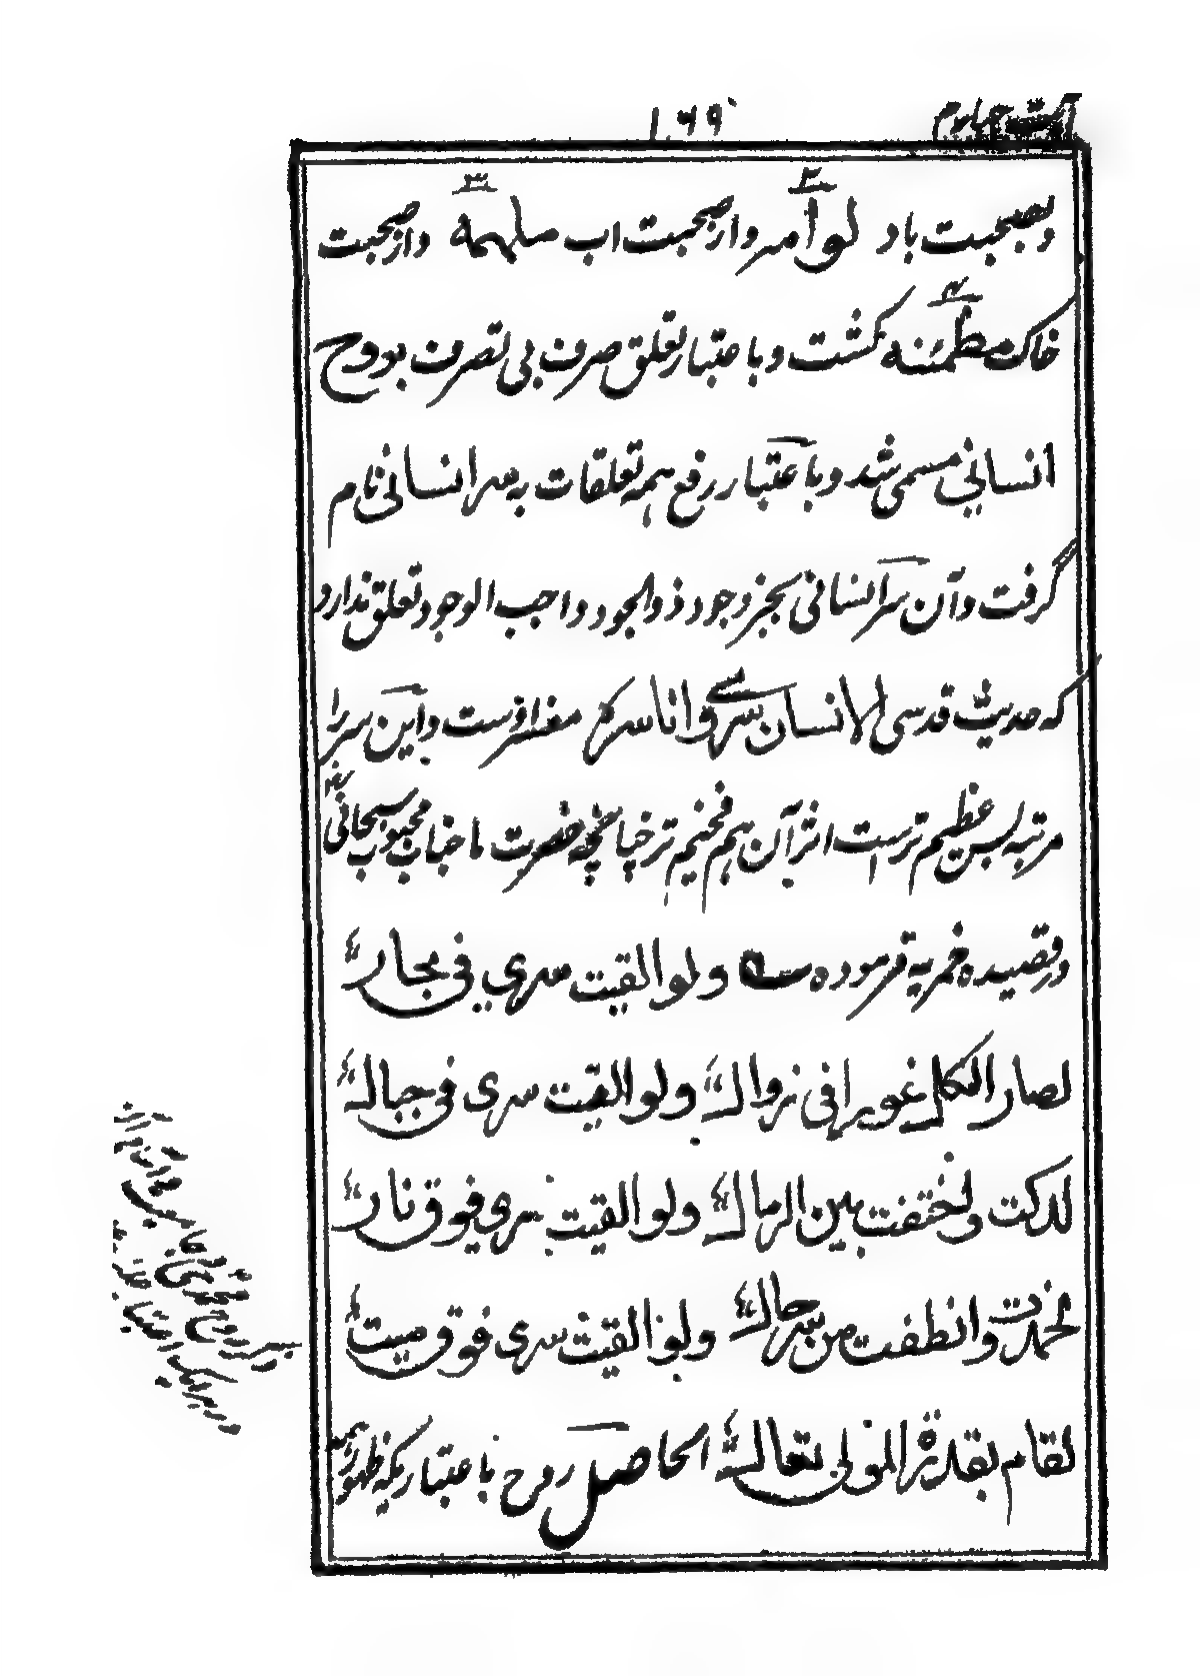 ۱۶۹
وبصحبت باد لوامه و از صحبت اب ملهمة و از صحبت
خاک مطمئنه گشت و باعتبار تعلق صرف بی تصرف بروح
انسانی مسمی شد و باعتبار رفع همه تعلقات به سر انسانی نام
گرفت و آن سر انسانی بجز وجود ذوالجود واجب الوجود تعلق ندارد
که حدیث قدسی الانسان سری و انا سره مخبر ازوست و این سر را
مرتبه بس عظیم ترست اثر آن هم فخیم تر چنانچه حضرت ما جناب محبوب سبحانی رض
در قصیده خمریه فرموده ولو القیت سری فی بحار
لصار الکل غورا فی زوال ولو القیت سری فی جبال
لدکت و لختفت بین الرمال ولو القیت سری فوق نار
لخمدت وانطفت من سر حال ولو القیت سری فوق میت
لقام بقدرة المولی تعال الحاصل روح باعتباریکه ظهور همه